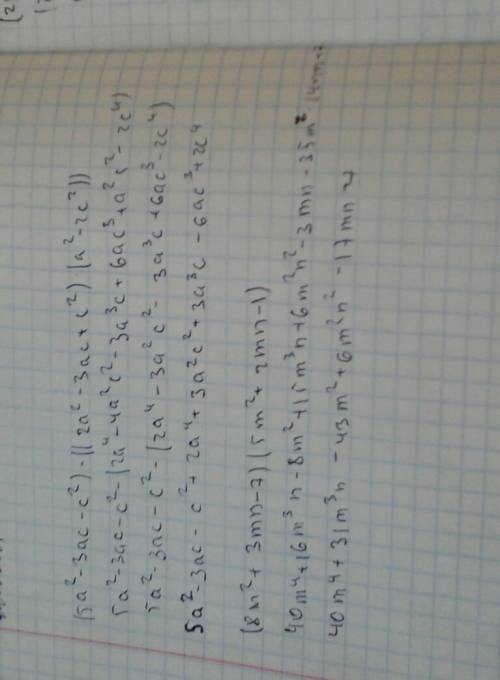 (5a²-3ac-c²)-((2a²-3ac+c²)(a²-2c²))
5a²-3ac-c²-(2a⁴-4a²c²-3a³c+6ac³+a²c²-2c⁴)
5a²-3ac-c²-(2a⁴-3a²c²-3a³c+6ac³-2c⁴)
5a²-3ac-c²+2a⁴+3a²c²+3a³c-6ac³+2c⁴
(8m²+3mn-7)(5m²+2mn-1)
40m⁴+16m³n-8m²+15m³n+6m²n²-3mn-35m²-14mn+7
40m⁴+31m³n-43m²+6m²n²-17mn+7